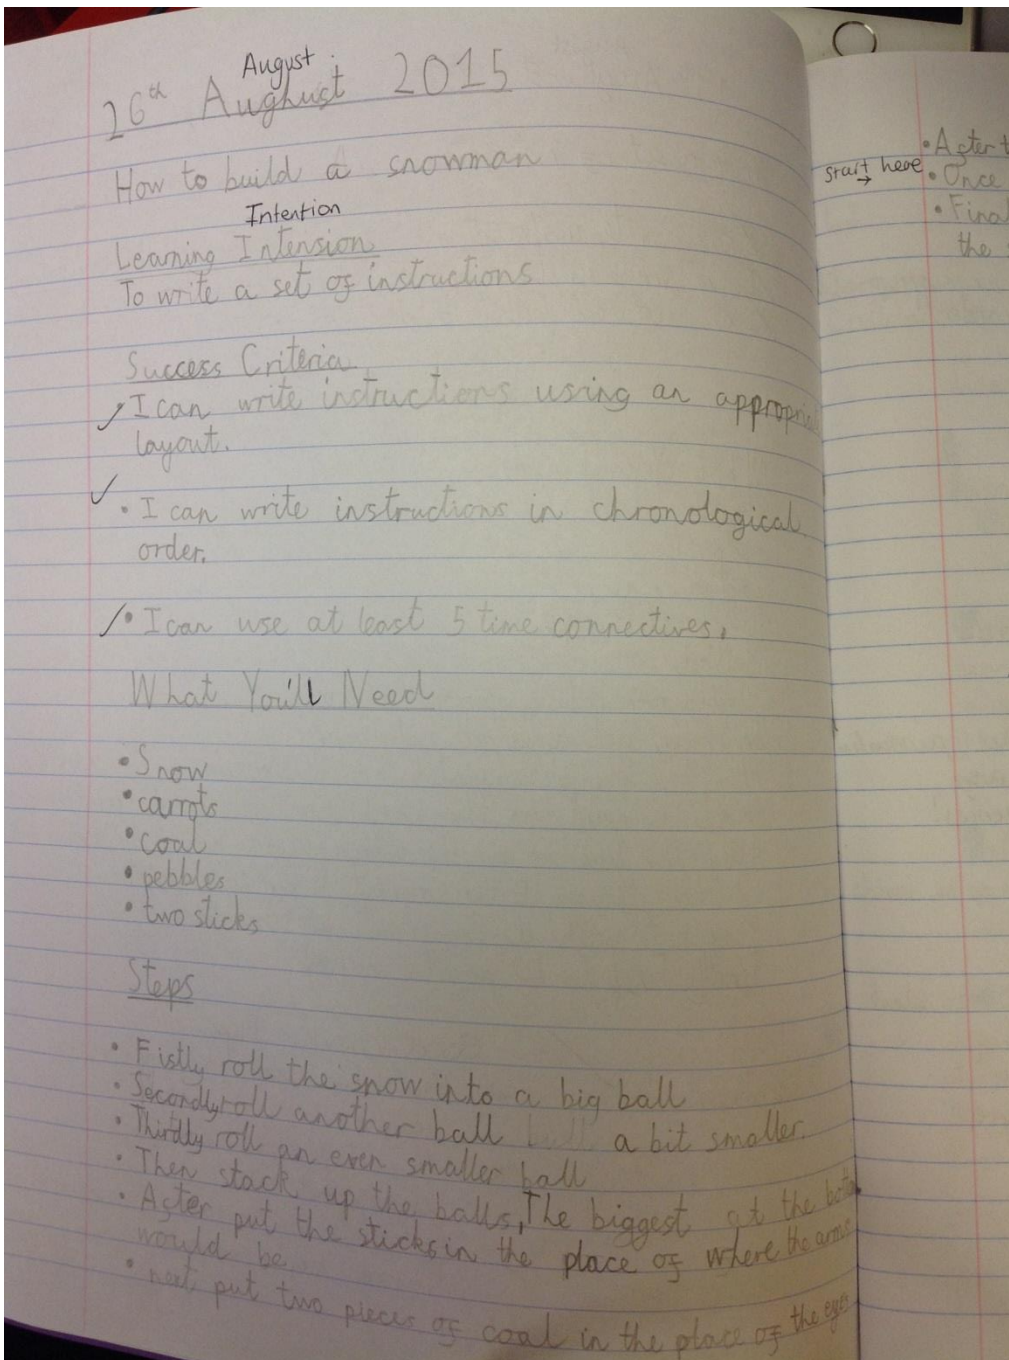 August
26th Aughust 2015
How to build a snowman
Intention
Learning Intension
To write a set of instructions
Success Criteria
I can write instructions using an
layout.
• I can write instructions in chronological
order.
• I can use at least 5 time connectives.
What You'll Need
• Snow
• carrots
• coal
• pebbles
• two sticks
Steps
• Fistly roll the snow into a big ball
• Secondly roll another ball a bit smaller.
• Thirdly roll an even smaller ball
• Then stack up the balls, The biggest at the
• After put the sticks in the place of where the arms
would be
• next put two pieces of coal in the place of the eyes
• After
start here • Once
→
• Final
the